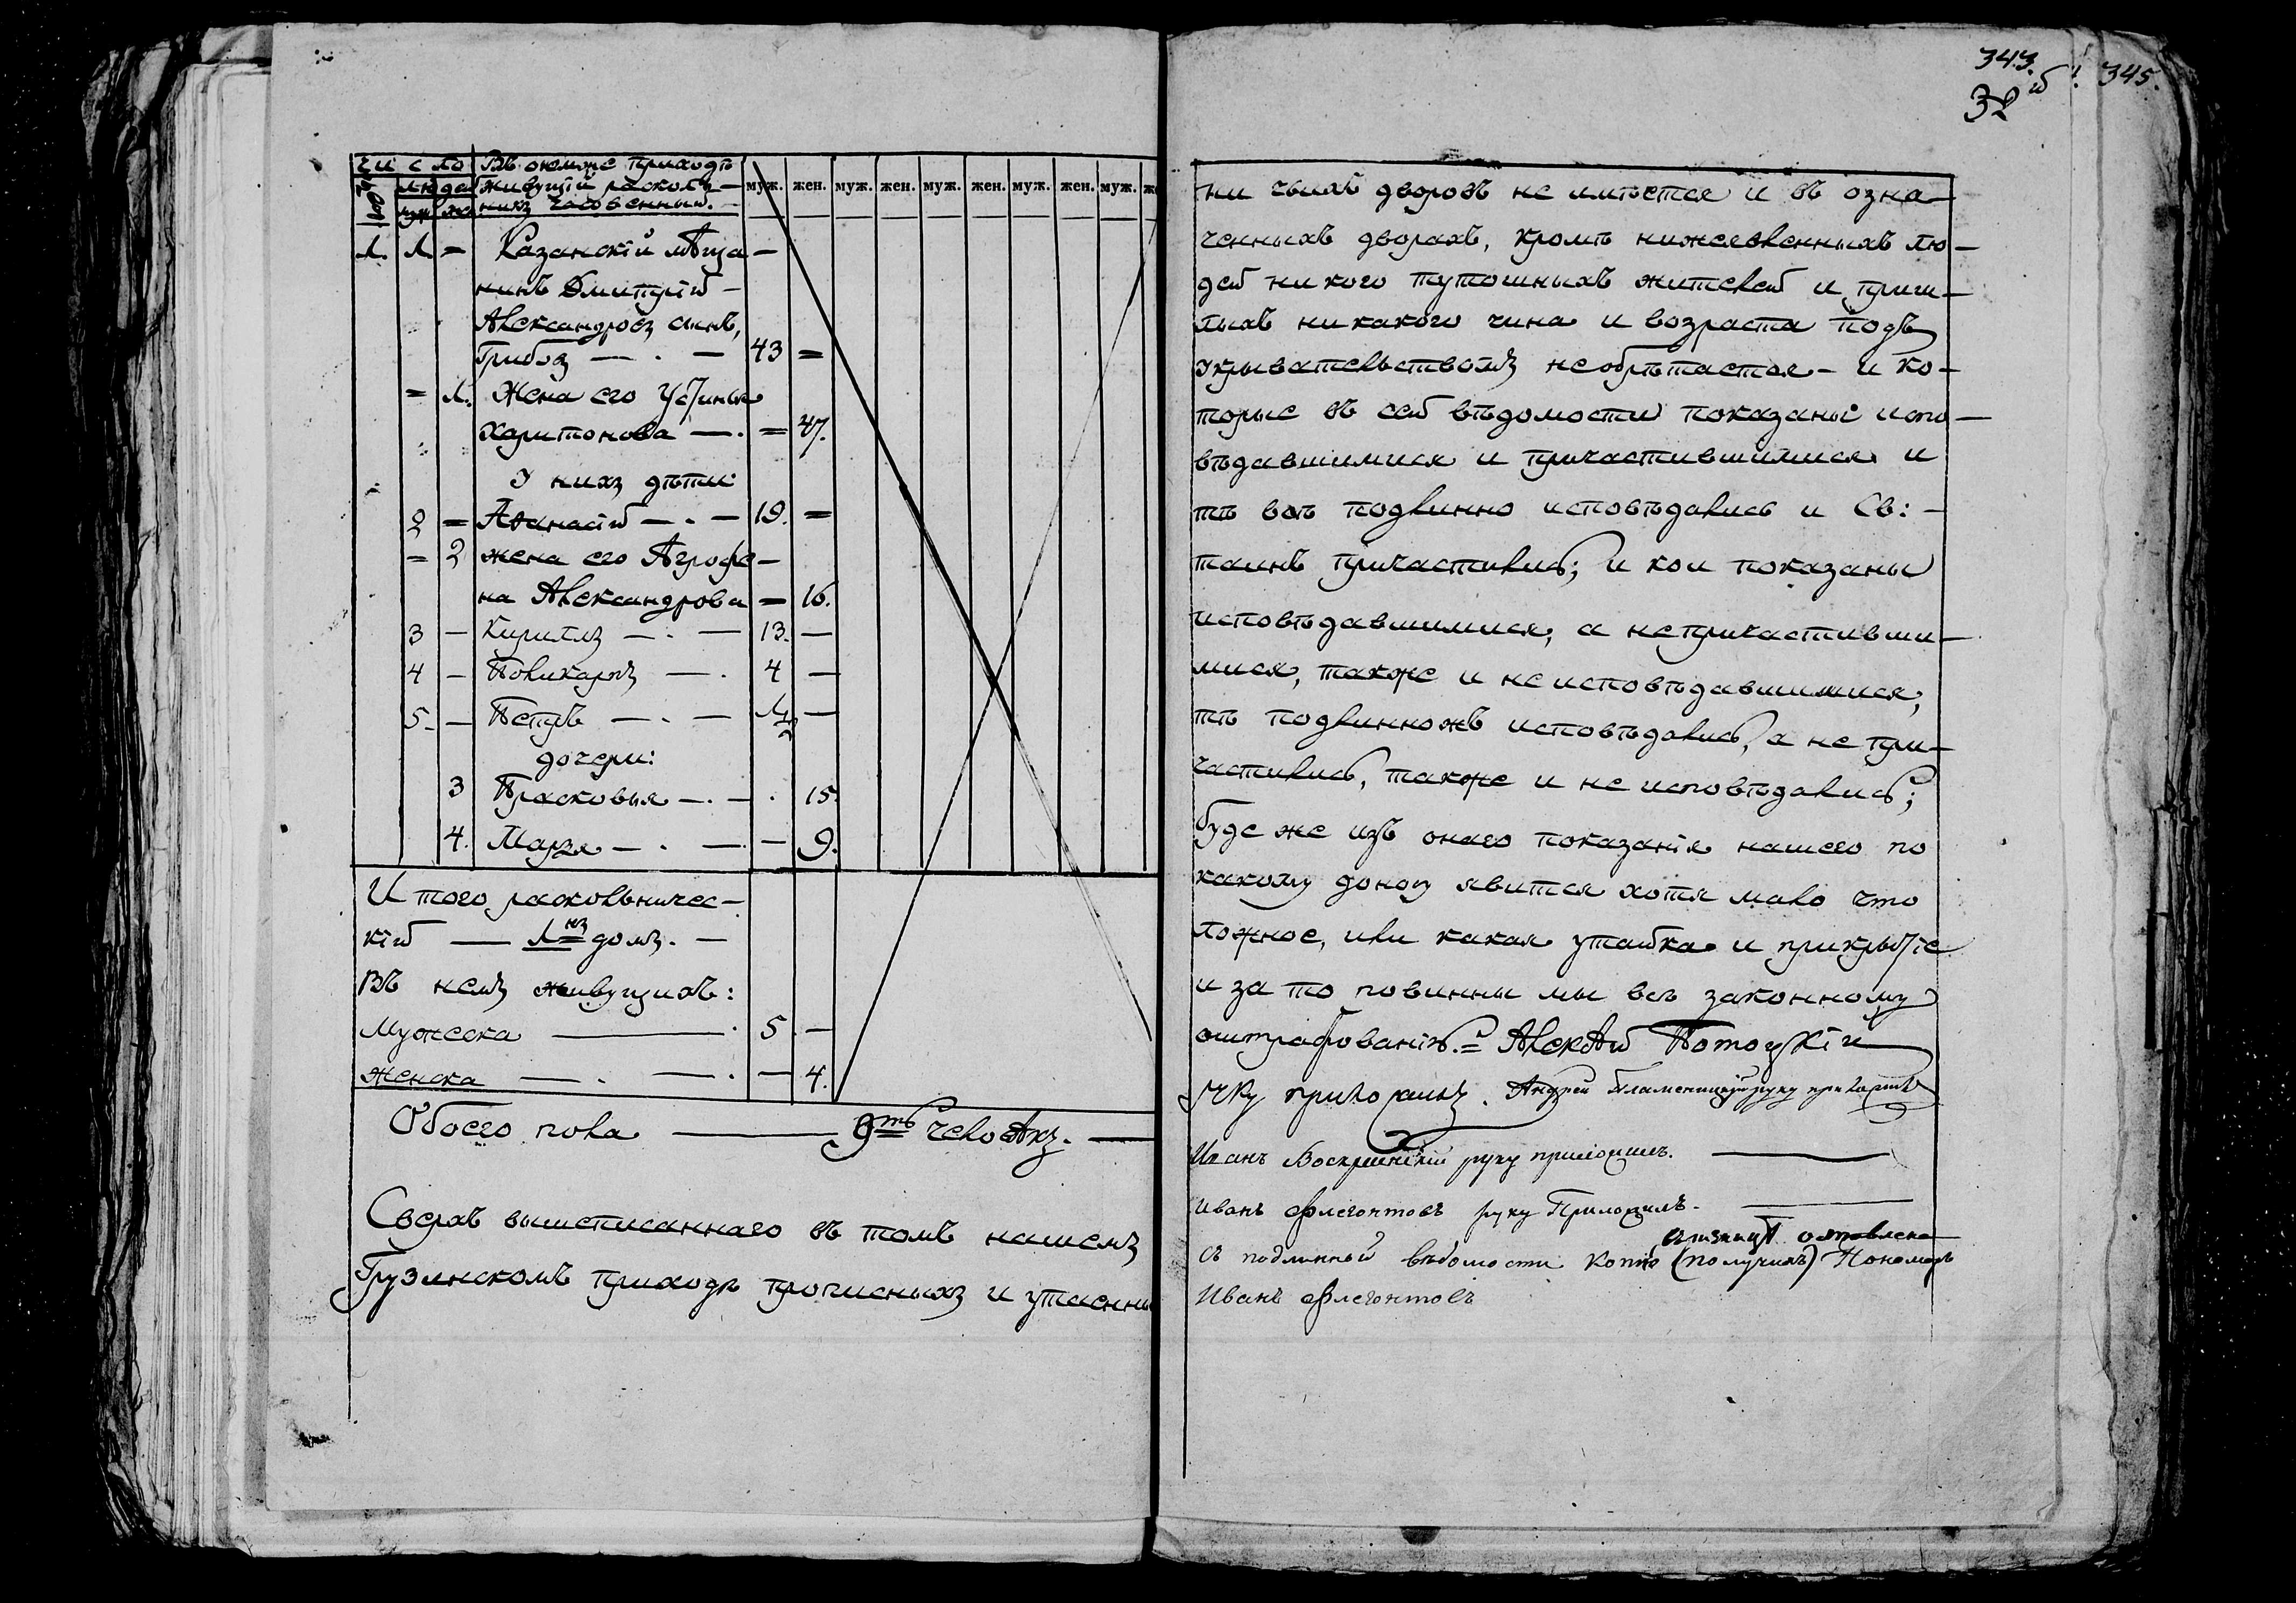 число Въ ономже приходѣ
людей живущій расколь-
муж. жен. муж. жен. муж. жен. муж. жен. муж.
никъ часовенный.
1. 1. = Казанскій мѣща-
нинъ Дмитрій
Александровъ сынъ,
Грибов — . — 43 =
= 1. Жена его Устинья
Харитонова — . = 47.
У нихъ дѣти:
2 = Аѳанасій — . — 19. =
= 2 жена его Агрофе-
на Александрова = 16.
3 — Кириллъ — . — 13. —
4 — Поликарпъ — . 4 —
5. — Петръ — . — 1/2 —
дочери:
3 Прасковья — . — . 15.
4. Марья — . — — 9.
Итого раскольничес-
кій — 1нъ домъ. —
Въ немъ живущихъ:
Мужеска — . 5 . —
Женска — . — . — 4.
Обоего пола — 9ть человѣкъ. —
Сверхъ вышеписаннаго въ томъ нашемъ
Грузинскомъ приходѣ прописныхъ и утаенны
343.
32й 345.
ни чьихъ дворовъ не имѣется и въ озна-
ченныхъ дворахъ, кромѣ нижеявленныхъ лю-
дей никого тутошныхъ жителей и приш-
лыхъ никакого чина и возраста подъ
укрывательствомъ необрѣтается - и ко-
торые въ сей вѣдомости показаны испо-
вѣдавшимися и причастившимися и
тѣ всѣ подлинно исповѣдались и Св: -
таинъ причастились; и кои показаны
исповѣдавшимися, а непричастивши-
мися, также и не исповѣдавшимися,
тѣ подлинножъ исповѣдались, а не при-
частились, также и не исповѣдались;
буде же изъ онаго показанія нашего по
какому доносу явится хотя мало что
ложное, или какая утайка и прикрытіе
и за то повинны мы всѣ законному
оштрафованію. = Алексѣй Потоцкій
руку приложилъ. Андрей Пламеницкій руку приложилъ
Иванъ Воскресенскій руку приложилъ. —
Иванъ Флегонтовъ руку Приложилъ. —
оставлена
съ подлинный вѣдомости копію (получилъ) Пономарь
Иванъ Флегонтовъ